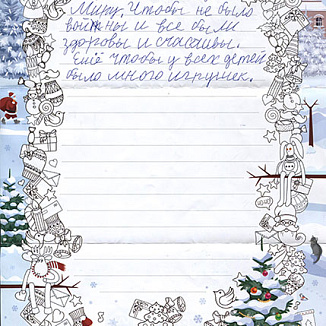 Миру. Чтобы не было
войны и все были
здоровы и счасливы.
Ещё чтобы у всех детей
было много игрушек.